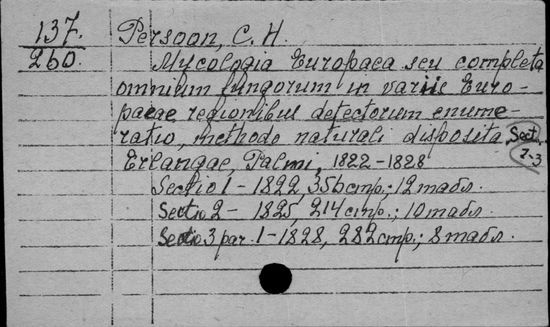 137. Persoon, C. H.
260. Mycologia Europaea seu completa
omnium fungorum in variis Euro-
paeae regionibus detectorum enume-
ratio, methodo naturali disposita. Sect.
2-3
Erlangae, Palmi, 1822-1828
Sectio 1 - 1822, 356 стр.; 12 табл.
Sectio 2 - 1825, 214 стр.; 10 табл.
Sectio 3 par. 1 - 1828, 282 стр.; 8 табл.